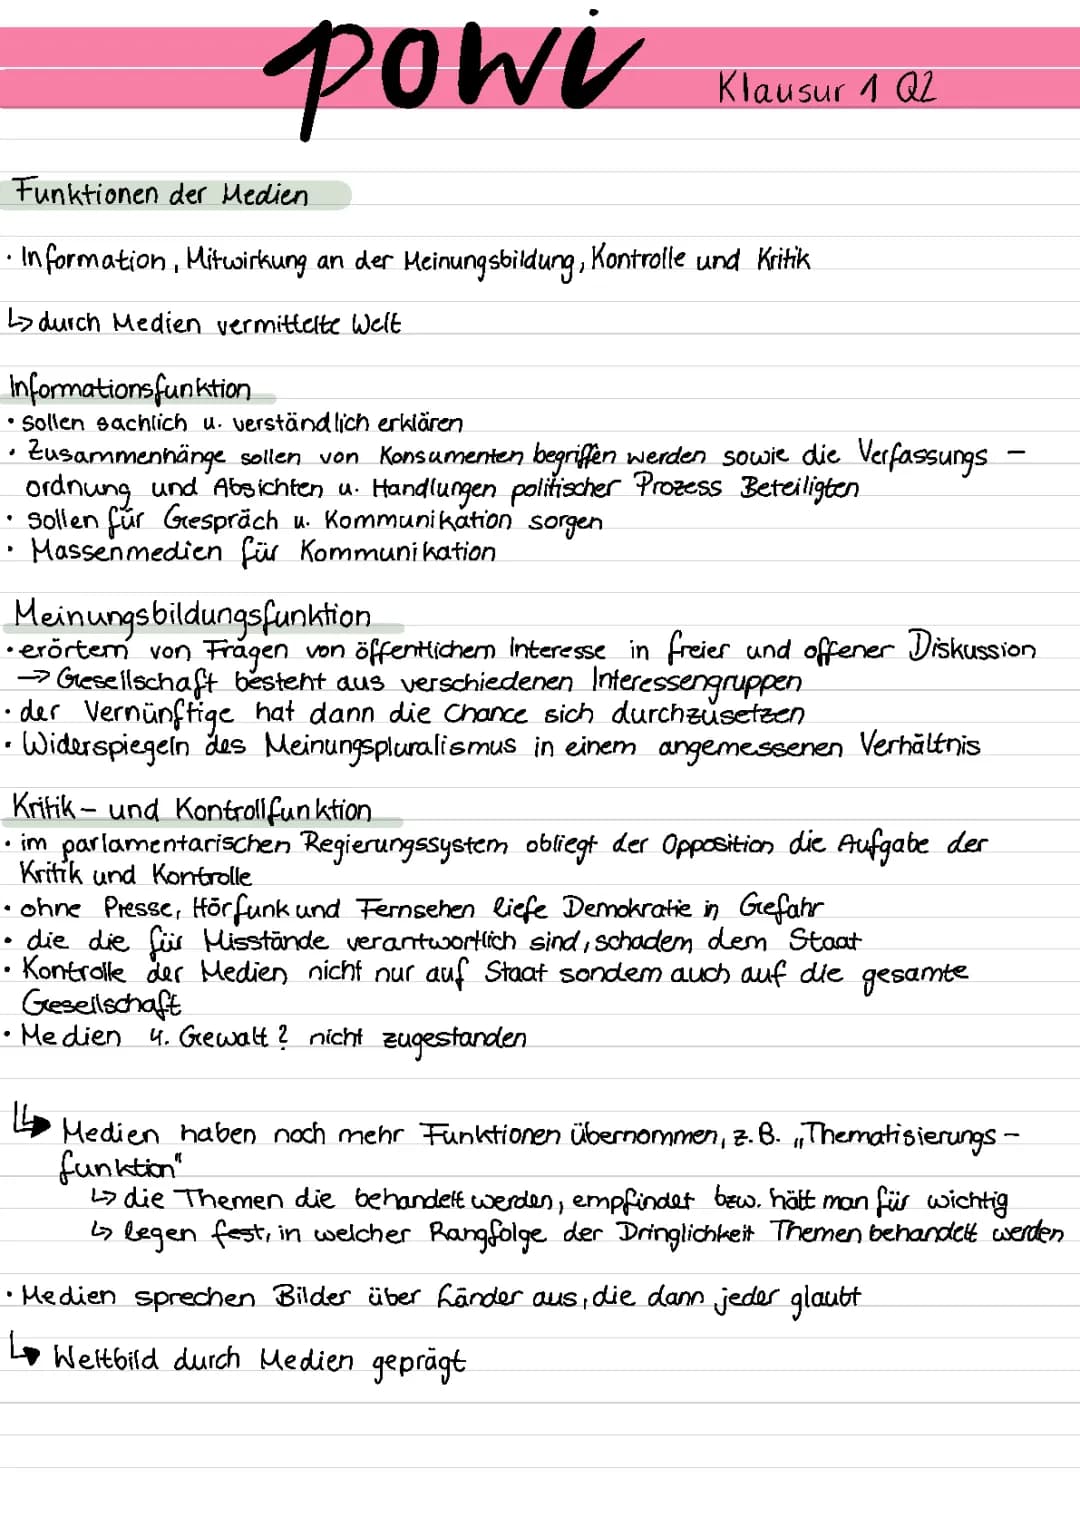 powi
Klausur 1 Q2
Funktionen der Medien
· Information, Mitwirkung an der Meinungsbildung, Kontrolle und Kritik
↳ durch Medien vermittelte Welt
Informationsfunktion
· sollen sachlich u. verständlich erklären
· Zusammenhänge sollen von Konsumenten begriffen werden sowie die Verfassungs-
ordnung und Absichten u. Handlungen politischer Prozess Beteiligten
· sollen für Gespräch u. Kommunikation sorgen
· Massenmedien für Kommunikation
Meinungsbildungsfunktion
· erörtern von Fragen von öffentlichem Interesse in freier und offener Diskussion
→ Gesellschaft besteht aus verschiedenen Interessengruppen
· der Vernünftige hat dann die Chance sich durchzusetzen
· Widerspiegeln des Meinungspluralismus in einem angemessenen Verhältnis
Kritik- und Kontrollfunktion
· im parlamentarischen Regierungssystem obliegt der Opposition die Aufgabe der
Kritik und Kontrolle
· ohne Presse, Hörfunk und Fernsehen liefe Demokratie in Gefahr
· die die für Misstände verantwortlich sind, schadem dem Staat
· Kontrolle der Medien nicht nur auf Staat sondern auch auf die gesamte
Gesellschaft
· Medien 4. Gewalt? nicht zugestanden
↳ Medien haben noch mehr Funktionen übernommen, z.B. „Thematisierungs-
funktion"
↳ die Themen die behandelt werden, empfindet bzw. hält man für wichtig
↳ legen fest, in welcher Rangfolge der Dringlichkeit Themen behandelt werden
· Medien sprechen Bilder über Länder aus, die dann jeder glaubt
↳ Weltbild durch Medien geprägt